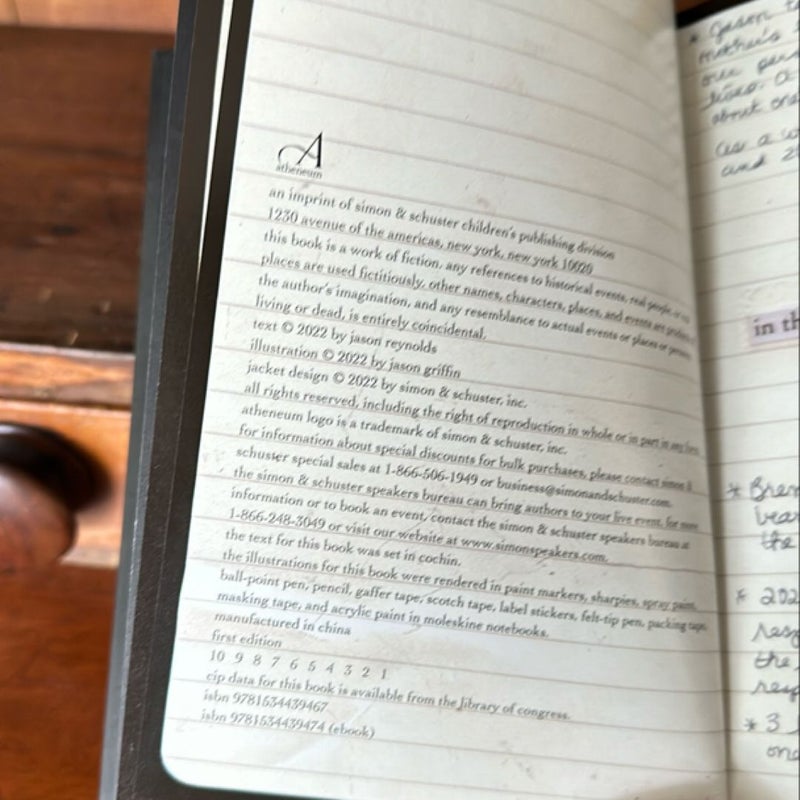 A
atheneum
an imprint of simon & schuster children's publishing division
1230 avenue of the americas, new york, new york 10020
this book is a work of fiction, any references to historical events, real people, or
places are used fictitiously, other names, characters, places, and events are
the author's imagination, and any resemblance to actual events or places or persons
living or dead, is entirely coincidental.
text © 2022 by jason reynolds
illustration © 2022 by jason griffin
jacket design © 2022 by simon & schuster, inc.
all rights reserved, including the right of reproduction in whole or in part in any form.
atheneum logo is a trademark of simon & schuster, inc.
for information about special discounts for bulk purchases, please contact simon &
schuster special sales at 1-866-506-1949 or business@simonandschuster.com.
the simon & schuster speakers bureau can bring authors to your live event. for more
information or to book an event, contact the simon & schuster speakers bureau at
1-866-248-3049 or visit our website at www.simonspeakers.com.
the text for this book was set in cochin.
the illustrations for this book were rendered in paint markers, sharpies, spray paint,
ball-point pen, pencil, gaffer tape, scotch tape, label stickers, felt-tip pen, packing tape,
masking tape, and acrylic paint in moleskine notebooks.
manufactured in china
first edition
10 9 8 7 6 5 4 3 2 1
cip data for this book is available from the library of congress.
isbn 9781534439467
isbn 9781534439474 (ebook)
* Jason
mother's
our
lives. a
about
as a
and 2
in th
*
the
* 202
the
* 3